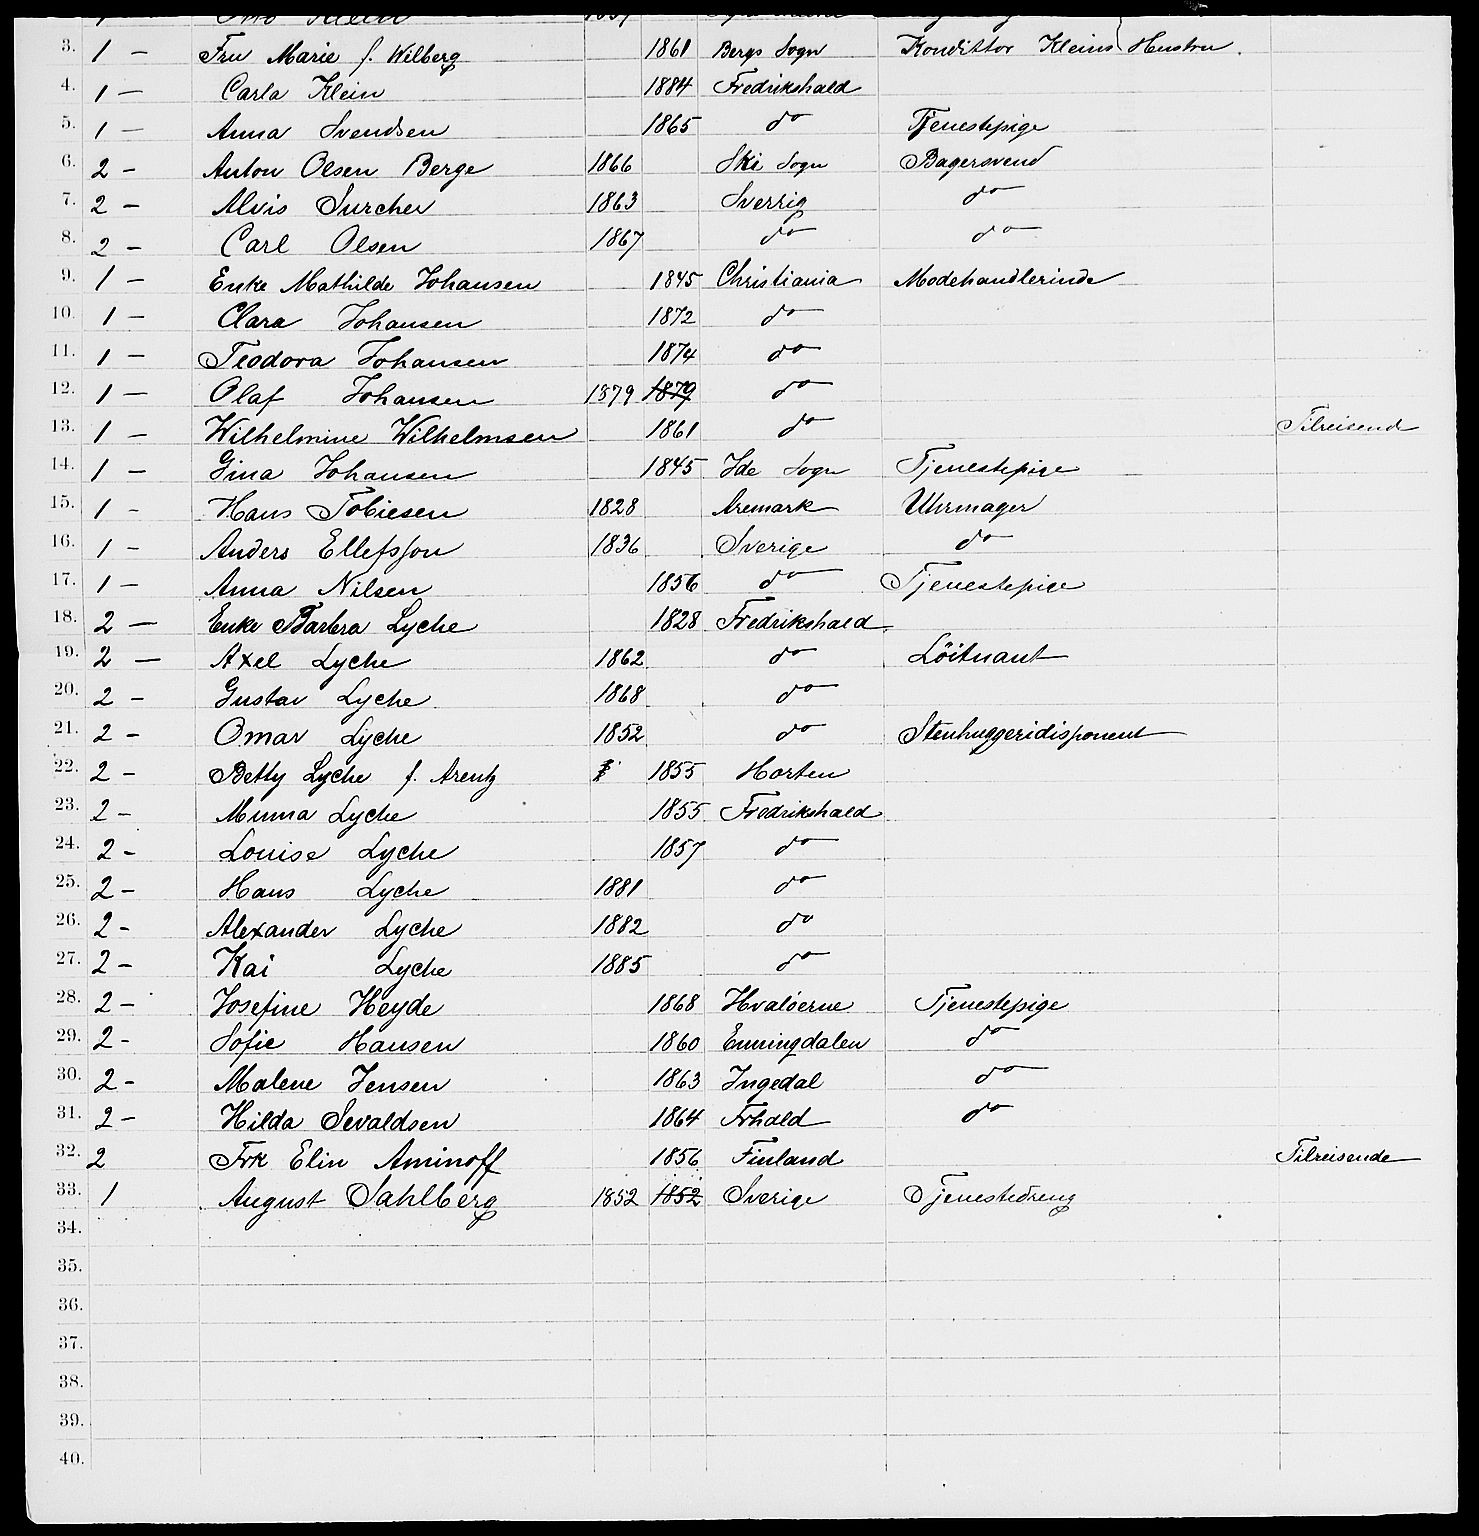 Klein
3. 1 — Fru Marie f. Wilberg 1861 Bergs Sogn Kondittor Kleins Hustru.
4. 1 — Carla Klein 1884 Fredrikshald
5. 1 — Anna Svendsen 1865 do Tjenestepige
6. 2 - Anton Olsen Berge 1866 Ski Sogn Bagersvend
7. 2 - Alvis Surcher 1863 Sverrig do
8. 2 - Carl Olsen 1867 do do
9. 1 — Enke Mathilde Johansen 1845 Christiania Modehandlerinde
10. 1 — Clara Johansen 1872 do
11. 1 — Teodora Johansen 1874 do
12. 1 — Olaf Johansen 1879 1879 do
13. 1 — Wilhelmine Wilhelmsen 1861 do Tilreisende
14. 1 — Gina Johansen 1845 Ide Sogn Tjenestepige
15. 1 - Hans Tobiesen 1828 Aremark Uhrmager
16. 1 - Anders Ellefsson 1836 Sverige do
17. 1 — Anna Nilsen 1856 do Tjenestepige
18. 2 — Enke Barbra Lyche 1828 Fredrikshald
19. 2 — Axel Lyche 1862 do Löitnant
20. 2 - Gustav Lyche 1868 do
21. 2 - Omar Lyche 1852 do Stenhuggeridisponent
22. 2 - Betty Lyche f. Arentz 1855 Horten
23. 2 - Minna Lyche 1855 Fredrikshald
24. 2 - Louise Lyche 1857 do
25. 2 - Hans Lyche 1881 do
26. 2 - Alexander Lyche 1882 do
27. 2 - Kai Lyche 1885 do
28. 2 - Josefine Heyde 1868 Hvaløerne Tjenestepige
29. 2 - Sofie Hansen 1860 Enningdalen do
30. 2 - Malene Jensen 1863 Ingedal do
31. 2 - Hilda Sevaldsen 1864 Frhald do
32. 2 Frk Elin Aminoff 1856 Finland Tilreisende
33. 1 August Sahlberg 1852 1852 Sverige Tjenestedreng
34.
35.
36.
37.
38.
39.
40.